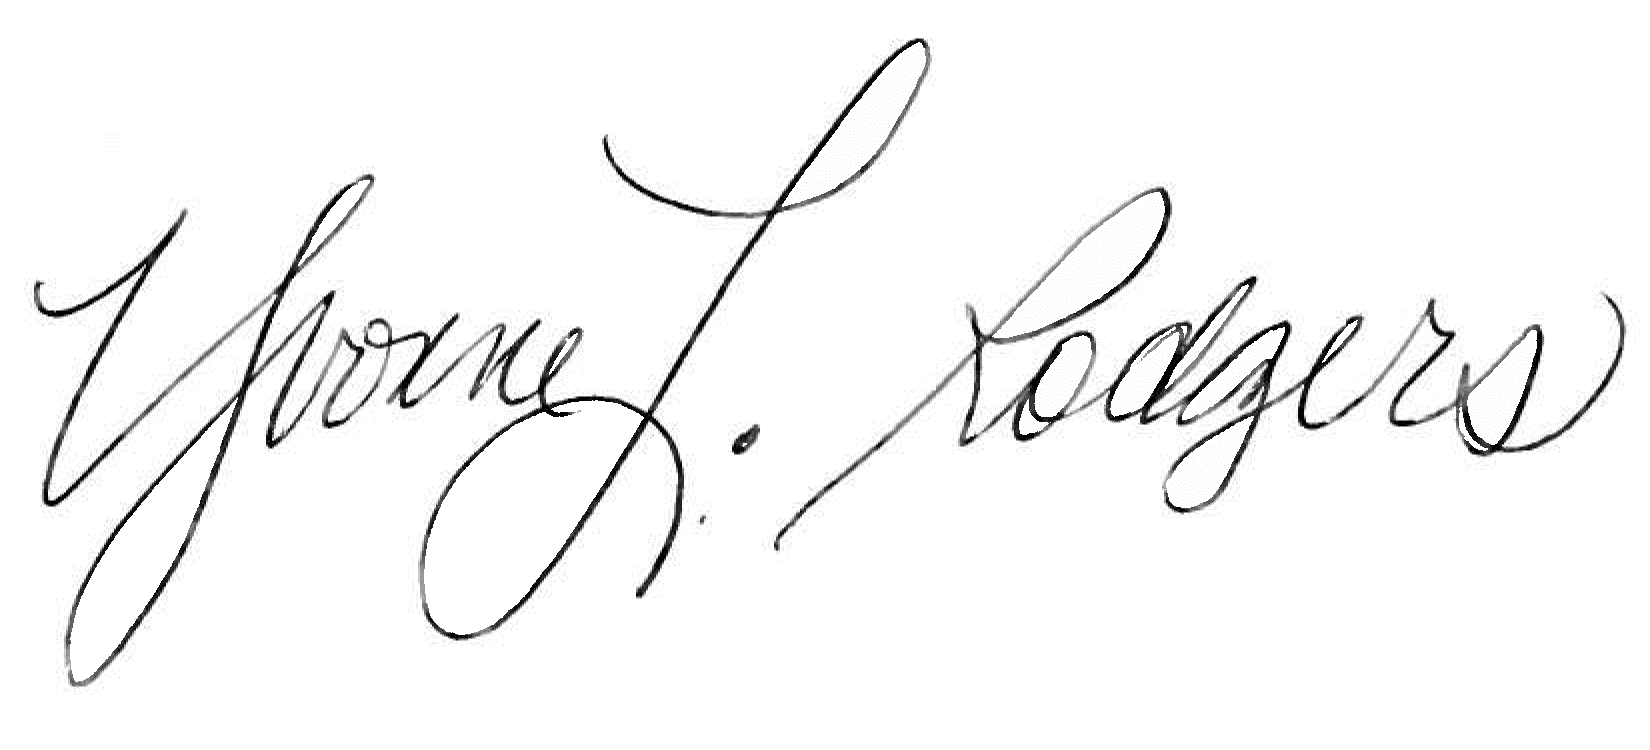 Yvonne L. Rodgers